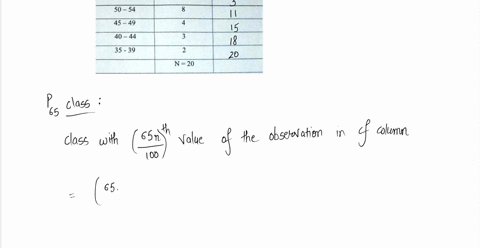 3
50 – 54 8 11
45 – 49 4 15
40 – 44 3 18
35 - 39 2 20
N = 20
P65 class :
class with (65n/100)th value of the observation in cf column
= (65.